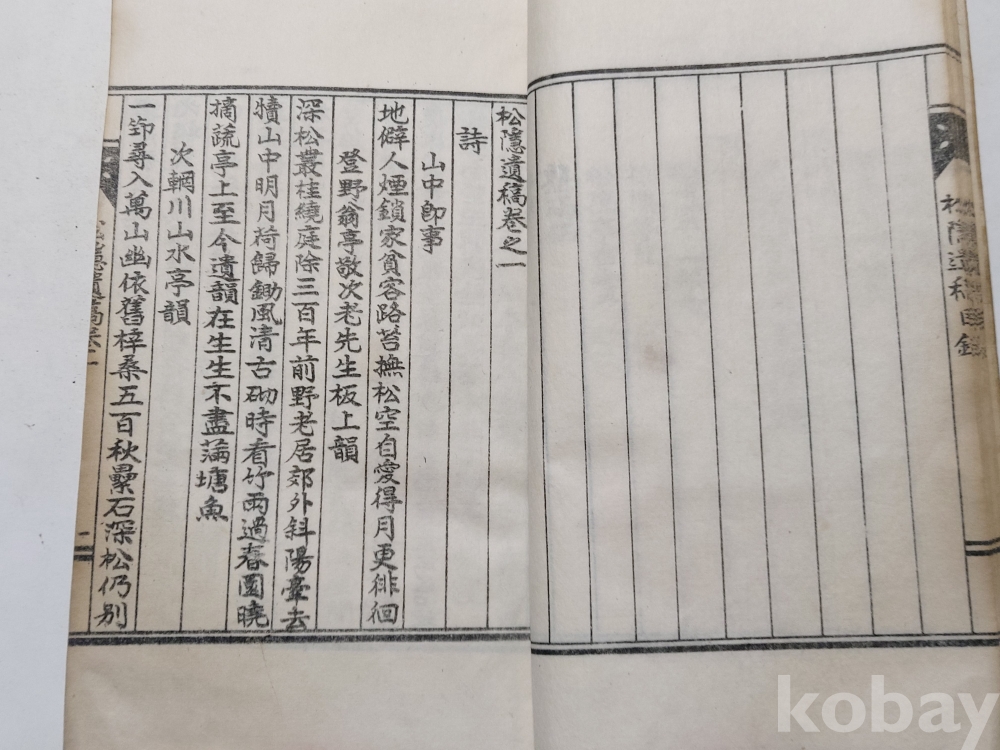 松隱遺稿目錄
松隱遺稿卷之一
詩
山中卽事
地僻人煙鎖家貧客路苔撫松空自愛得月更徘徊
登野翁亭敬次老先生板上韻
深松叢桂繞庭除三百年前野老居郊外斜陽臺去
犢山中明月荷歸鋤風清古砌時看竹雨過春園曉
摘蔬亭上至今遺韻在生生不盡滿塘魚
次輞川山水亭韻
一筇尋入萬山幽依舊梓桑五百秋纍石深松仍別
松隱遺稿卷一
一
kobay